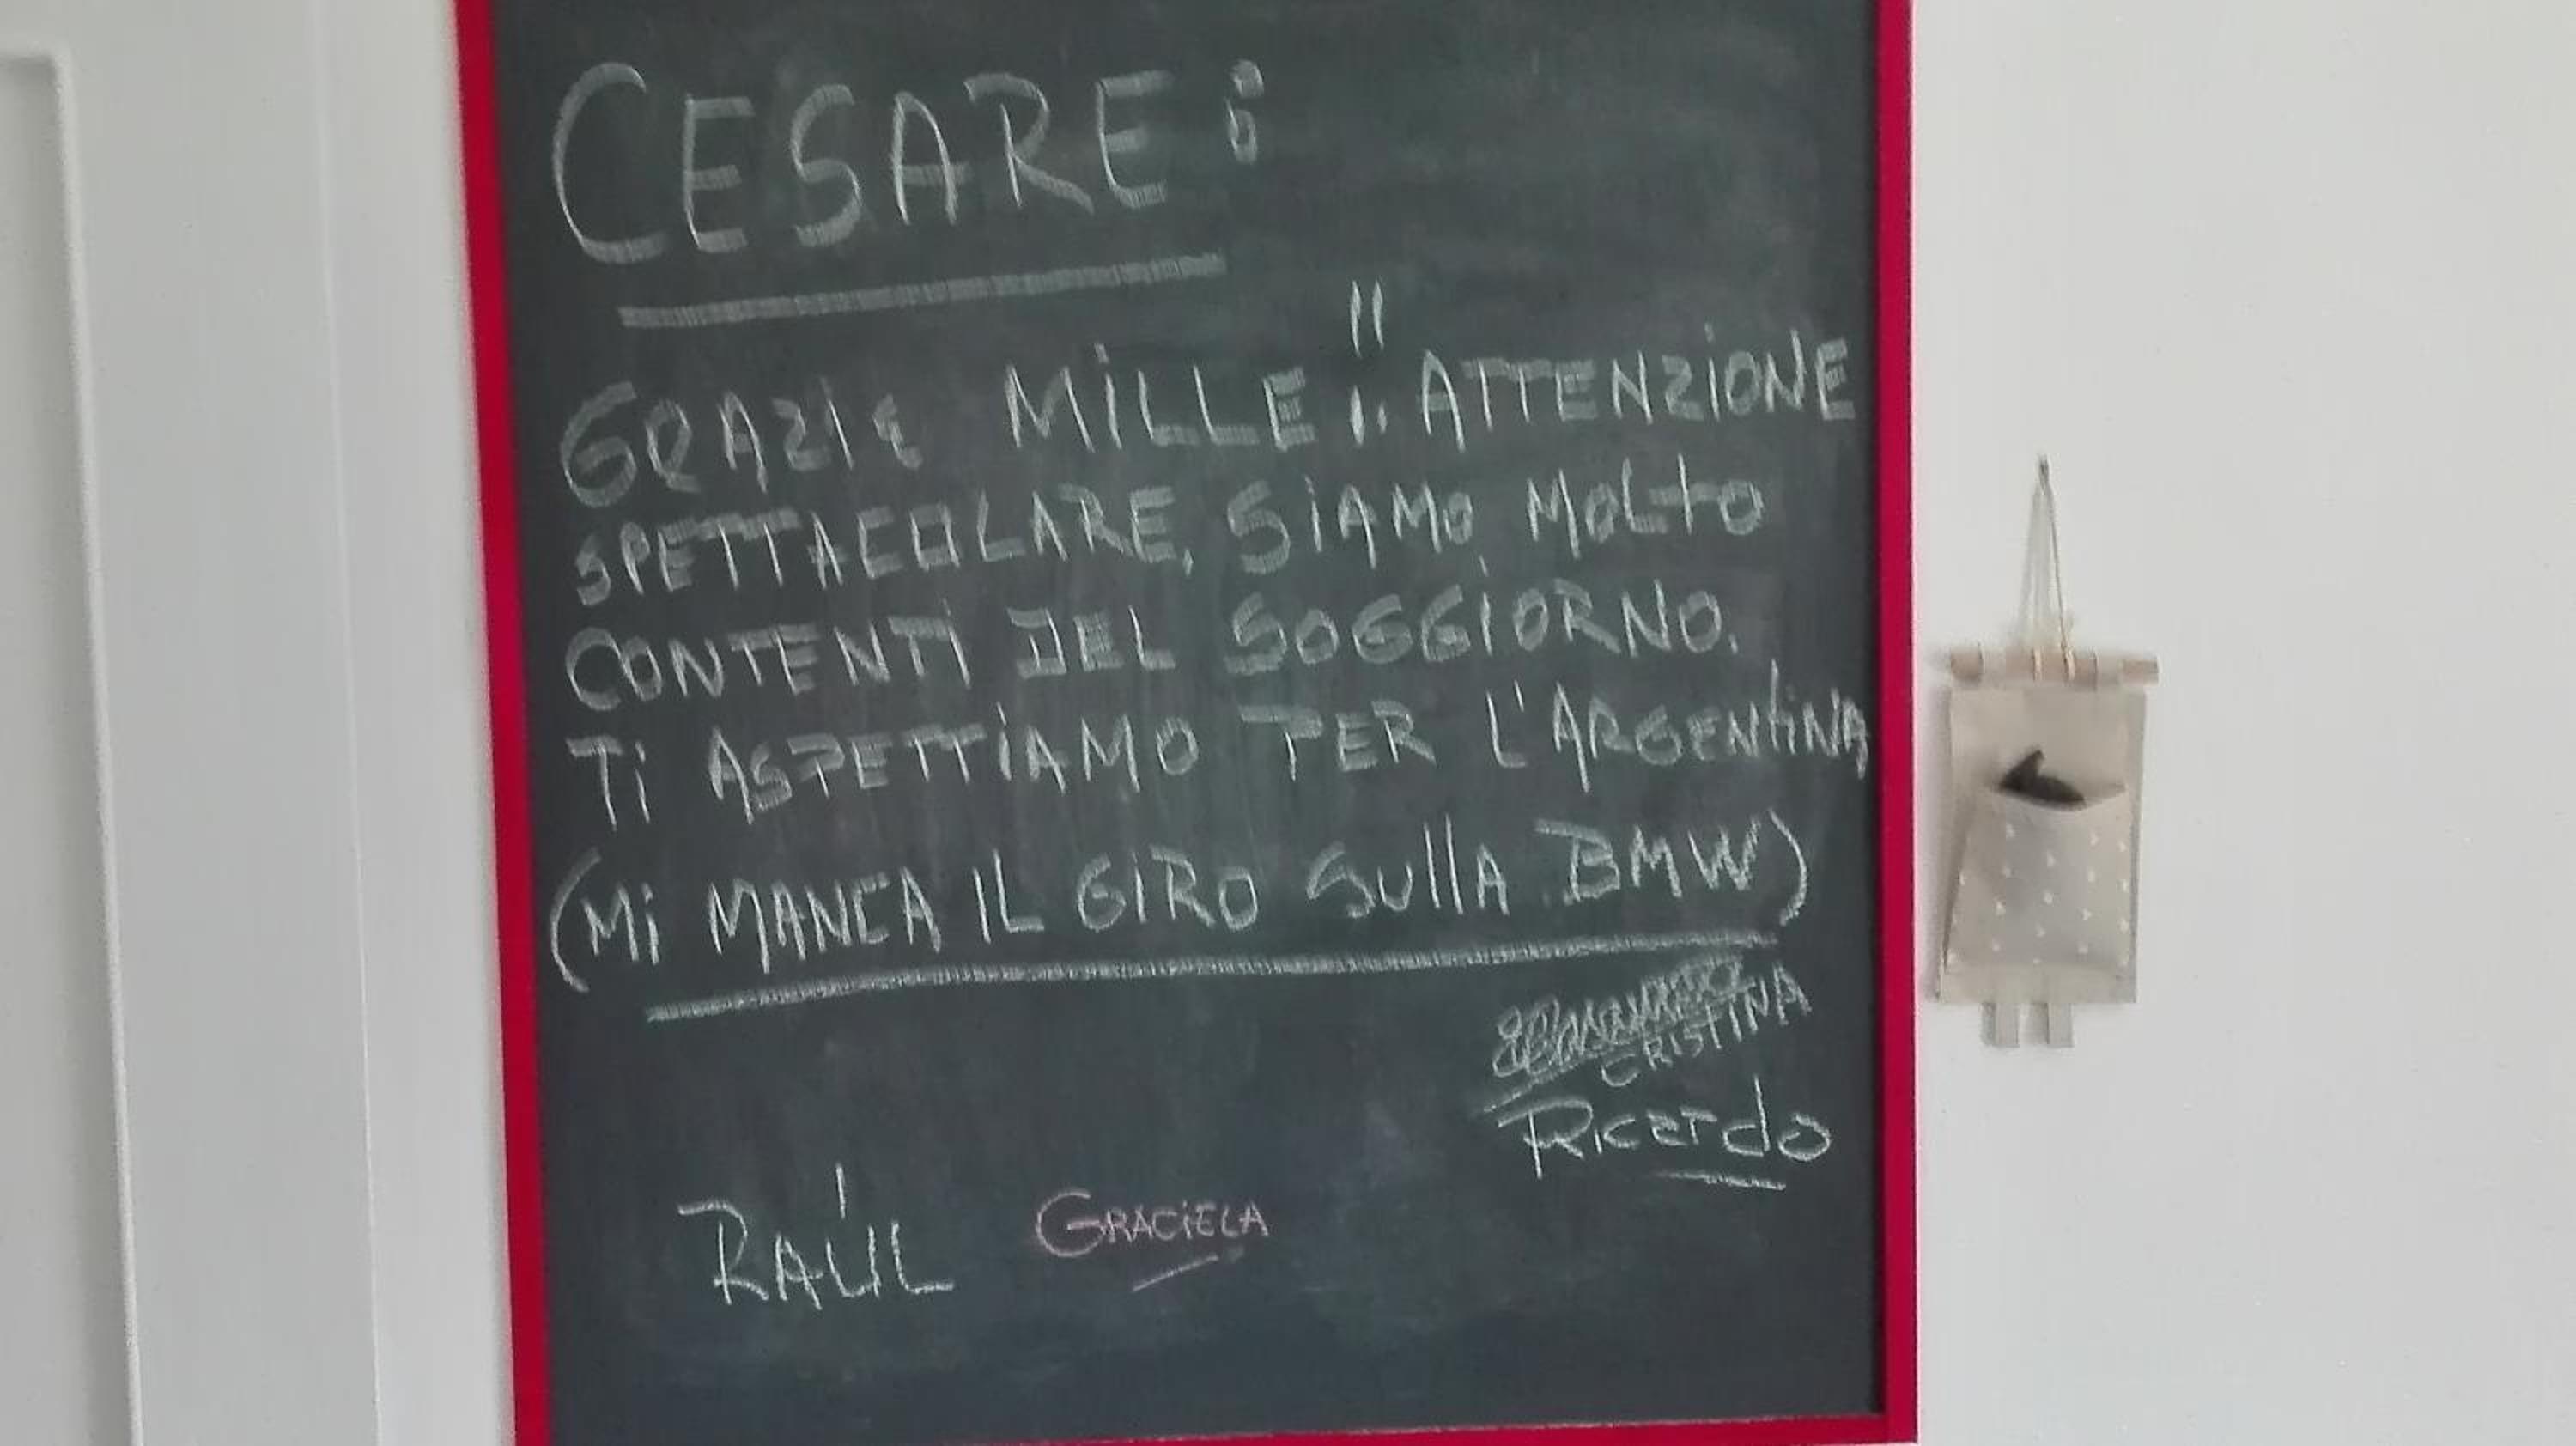 CESARE:
GRAZIE MILLE!! ATTENZIONE
SPETTACOLARE, SIAMO MOLTO
CONTENTI DEL SOGGIORNO.
TI ASPETTIAMO PER L'ARGENTINA
(MI MANCA IL GIRO SULLA BMW)
CRISTINA
Ricardo
RAÚL GRACIELA